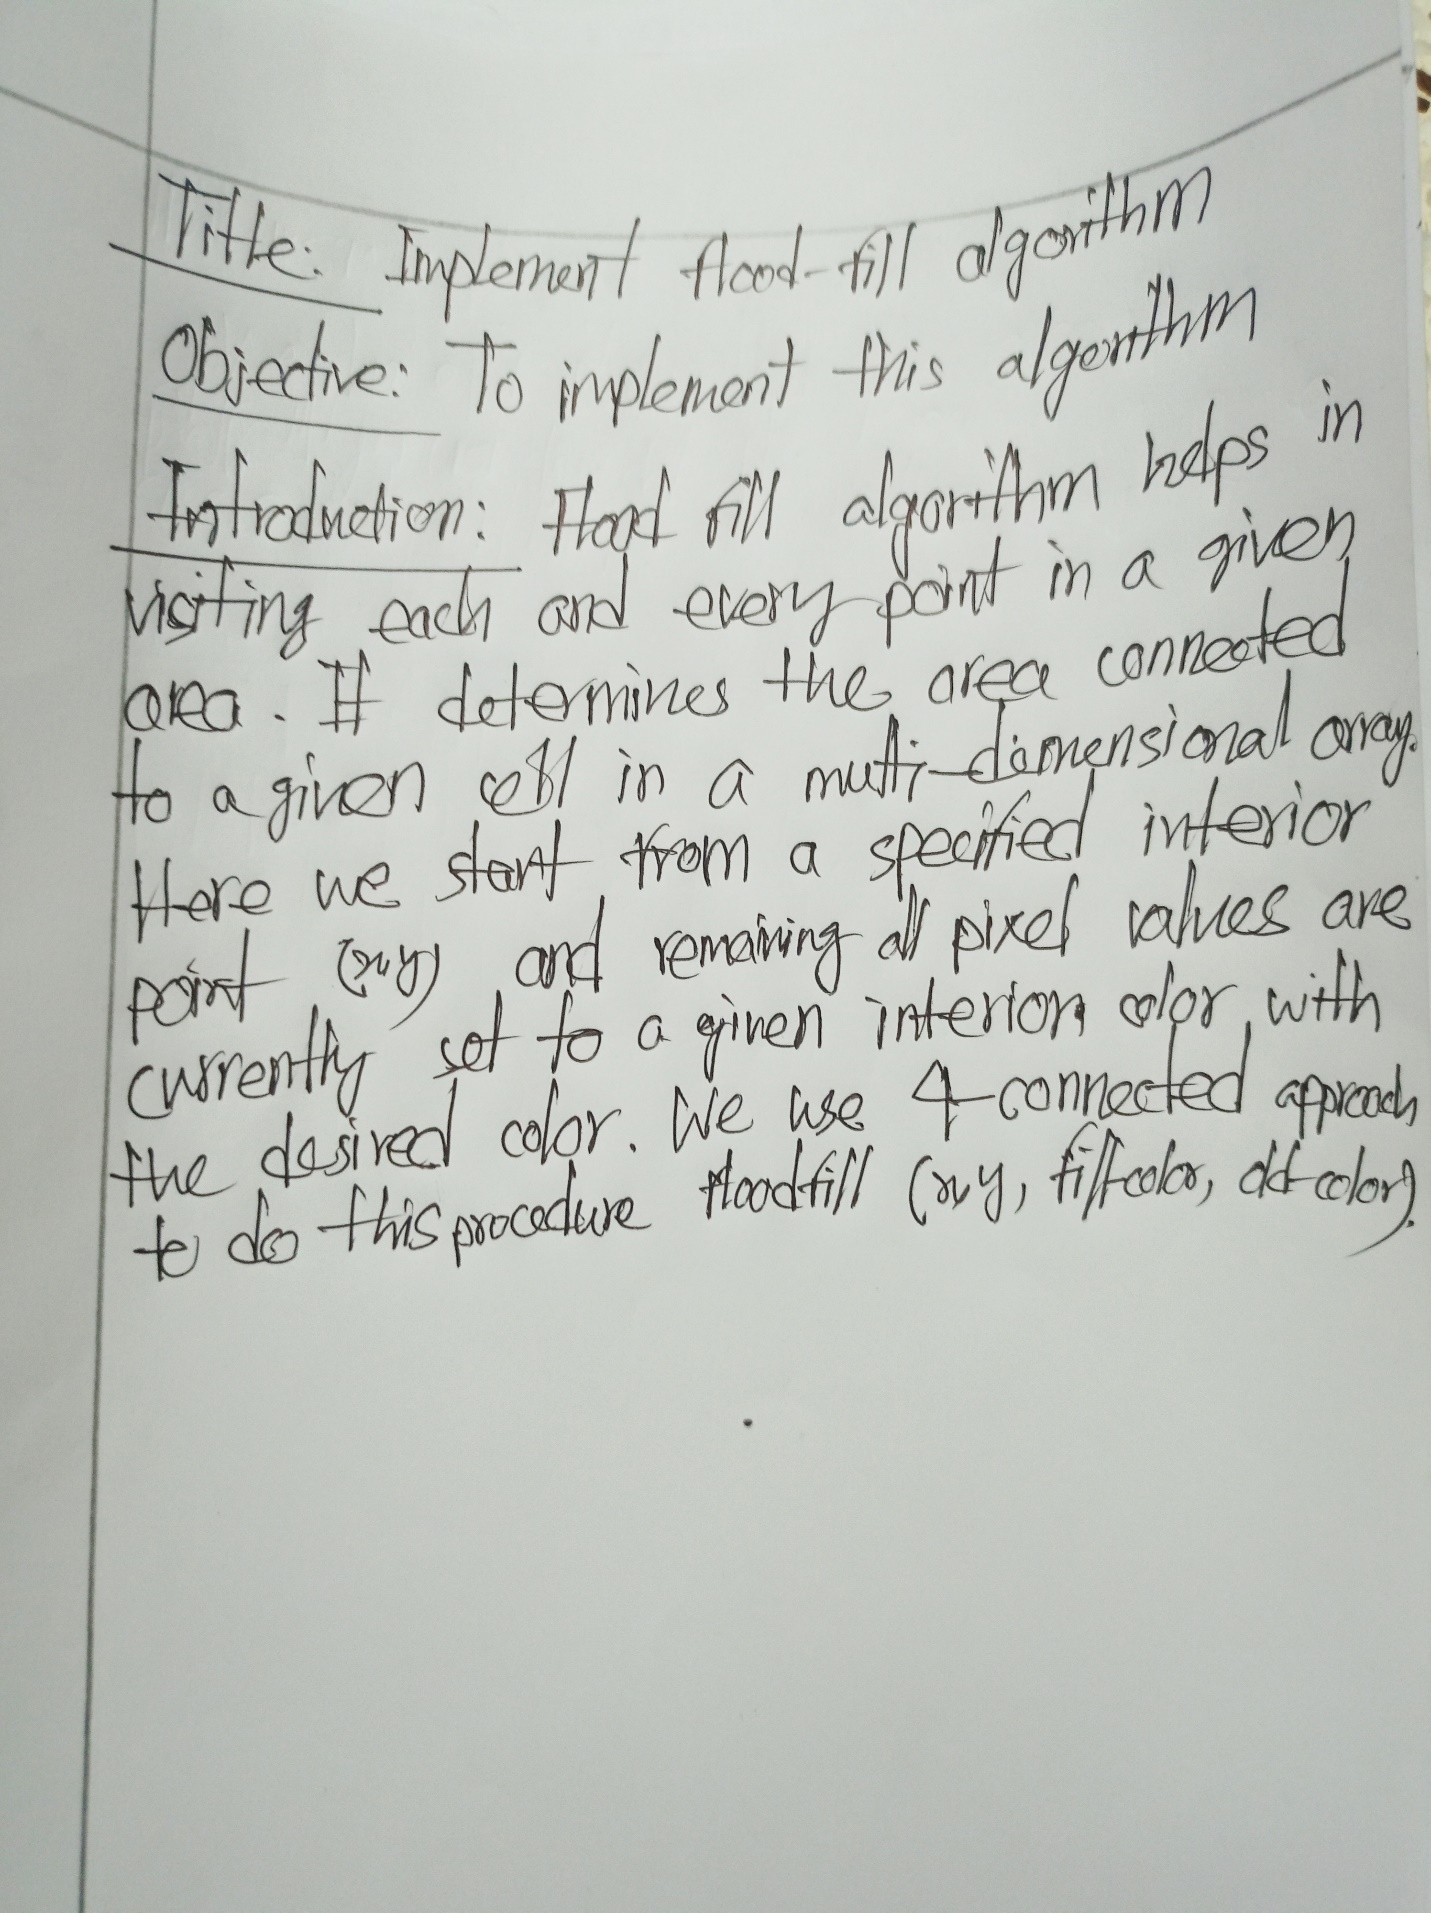 Title: Implement flood-fill algorithm
Objective: To implement this algorithm
Introduction: Flood fill algorithm helps in
visiting each and every point in a given
area. It determines the area connected
to a given cell in a multi-dimensional array.
Here we start from a specified interior
point (x,y) and remaining all pixel values are
currently set to a given interior color with
the desired color. We use 4-connected approach
to do this procedure floodfill (x,y, fill-color, old-color).